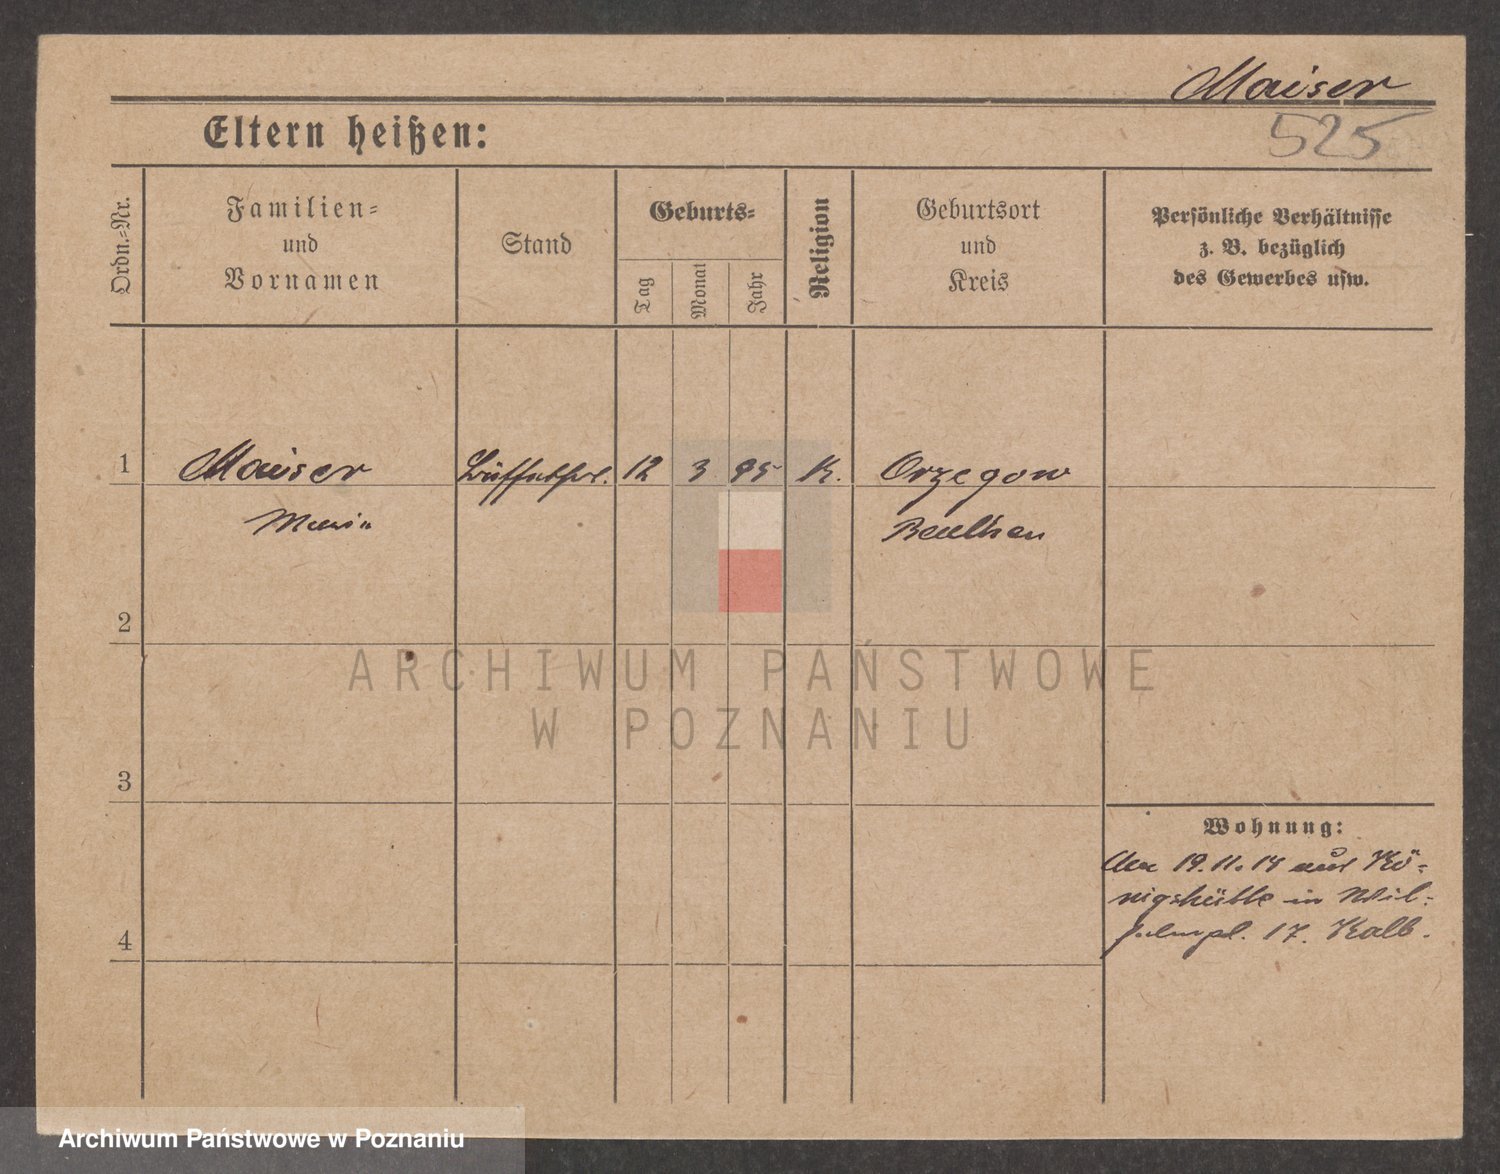 Maiser
525
Eltern heißen:
Ordn.-Nr.
Familien-
und
Vornamen
Stand
Geburts-
Tag
Monat
Jahr
Religion
Geburtsort
und
Kreis
Persönliche Verhältnisse
z. B. bezüglich
des Gewerbes usw.
1
Maiser
Büffetfrl.
12
3
95
K.
Orzegow
Maria
Beuthen
2
ARCHIWUM PAŃSTWOWE
W POZNANIU
3
Wohnung:
19.11.14 aus Kö-
nigshütte in Wil-
17. Kalb.
4
Archiwum Państwowe w Poznaniu